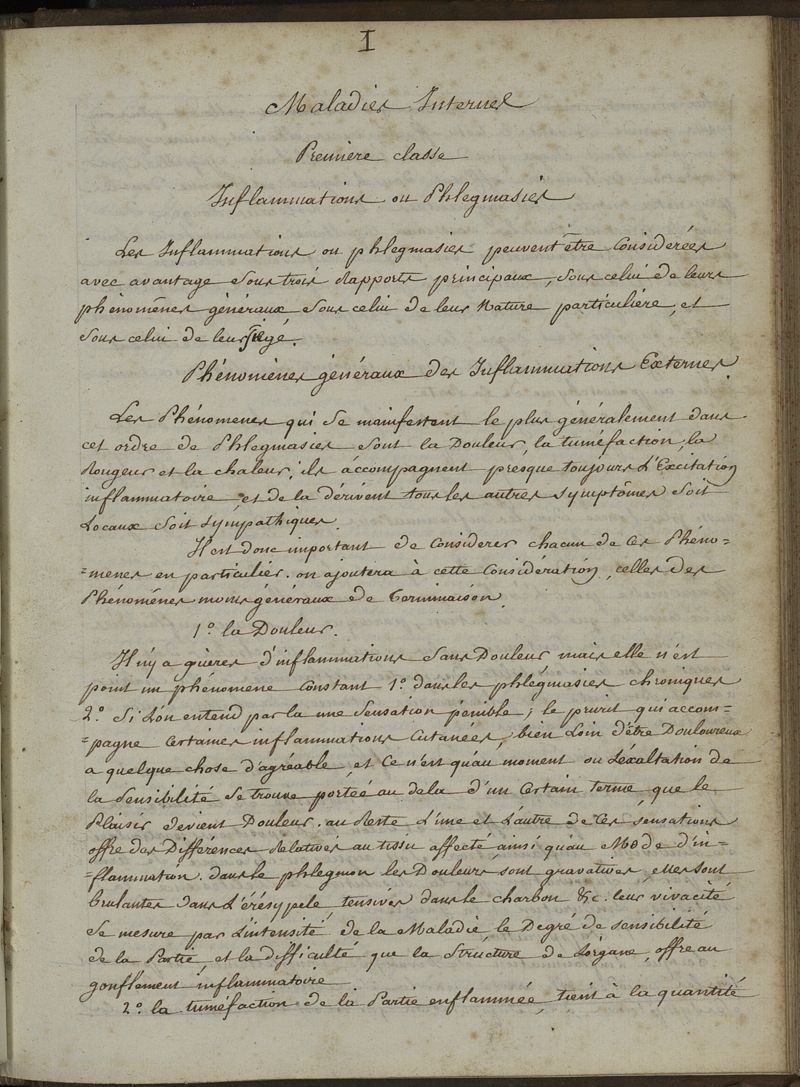 I
Maladies Internes
Premiere classe
Inflammations ou Phlegmasies
Les Inflammations ou phlegmasies peuvent être Considerées
avec avantage Sous trois Rapports principaux, Sous celui de leurs
phénomênes généraux Sous celui de leur Nature particuliére, et
Sous celui de leur siége.
Phénomènes généraux des Inflammations Externes.
Les Phénomenes qui Se manifestent le plus généralement dans
cet ordre de Phlegmasies Sont la Douleur, la tuméfaction, la
Rougeur et la chaleur; ils accompagnent presque toujours L'Excitation
inflammatoire et de la dérivent tous les autres symptômes Soit
Locaux Soit Sympathiques.
Il est donc important de Considerer chacun de Ces Phéno-
=menes en particulier. on ajoutera à cette Consideration, celles des
Phénomênes moins généraux de Terminaison.
1.º la Douleur.
Il n'y a guères d'inflammations Sans Douleur mais elle n'est
point un phénomene Constant 1.º dans les phlegmasies chroniques
2.º Si L'on entend par la une Sensation pénible; le prurit qui accom-
=pagne Certaines inflammations Cutanées, bien Loin d'être Douloureux
a quelque chose d'agréable, et Ce n'est qu'au moment ou L'éxaltation de
la Sensibilité Se trouve portée au dela d'un Certain terme que le
Plaisir devient Douleur. au Reste L'une et L'autre de Ces Sensations
offre des Différences Relatives au tissu affecté ainsi qu'au Mode d'in-
=flammation. dans le phlegmon les Douleurs sont gravatives, elles sont
brulantes dans L'érésypele, tensives dans le charbon &c. leur vivacité
Se mesure par L'intensité de la Maladie le Degré de Sensibilité
de la Partie et la difficulté que la Structure de L'organe, offre au
gonflement inflammatoire
2.º la tuméfaction de la Partie enflammée, tient à la quantité